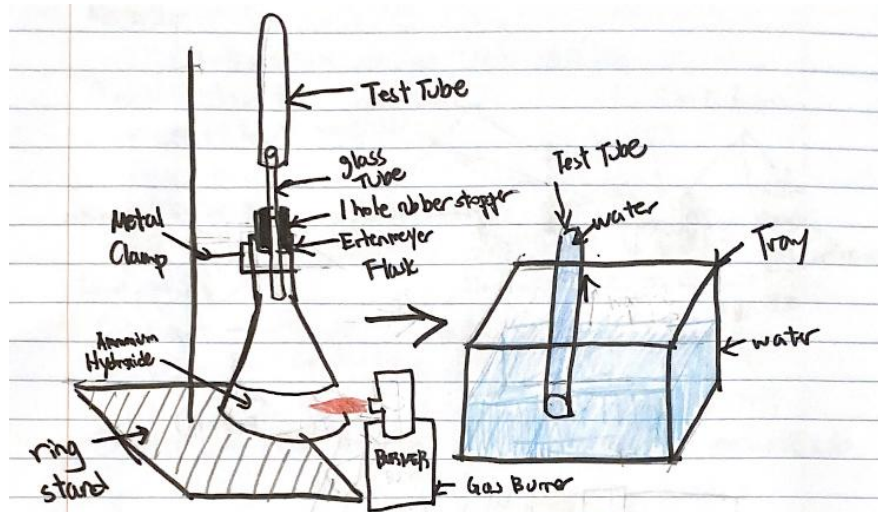 Test Tube
glass
Tube
1 hole rubber stopper
Erlenmeyer
Flask
Metal
Clamp
Ammonium
Hydroxide
ring
stand
BURNER
Gas Burner
Test Tube
water
Tray
water